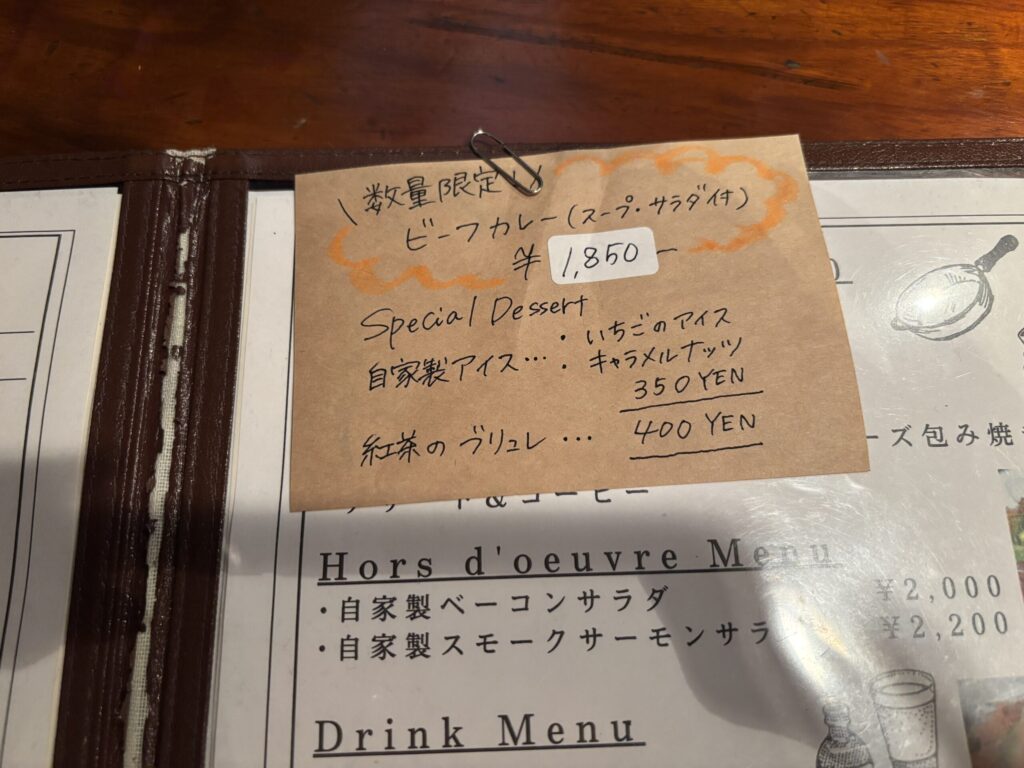 \数量限定!/
ビーフカレー(スープ・サラダ付)
¥1,850-
Special Dessert
自家製アイス…・いちごのアイス
・キャラメルナッツ
350YEN
紅茶の ブリュレ … 400 YEN
ーズ包み焼き
&コーヒー
Hors d'oeuvre Menu
・自家製ベーコンサラダ ¥2,000
・自家製スモークサーモンサラ ¥2,200
Drink Menu